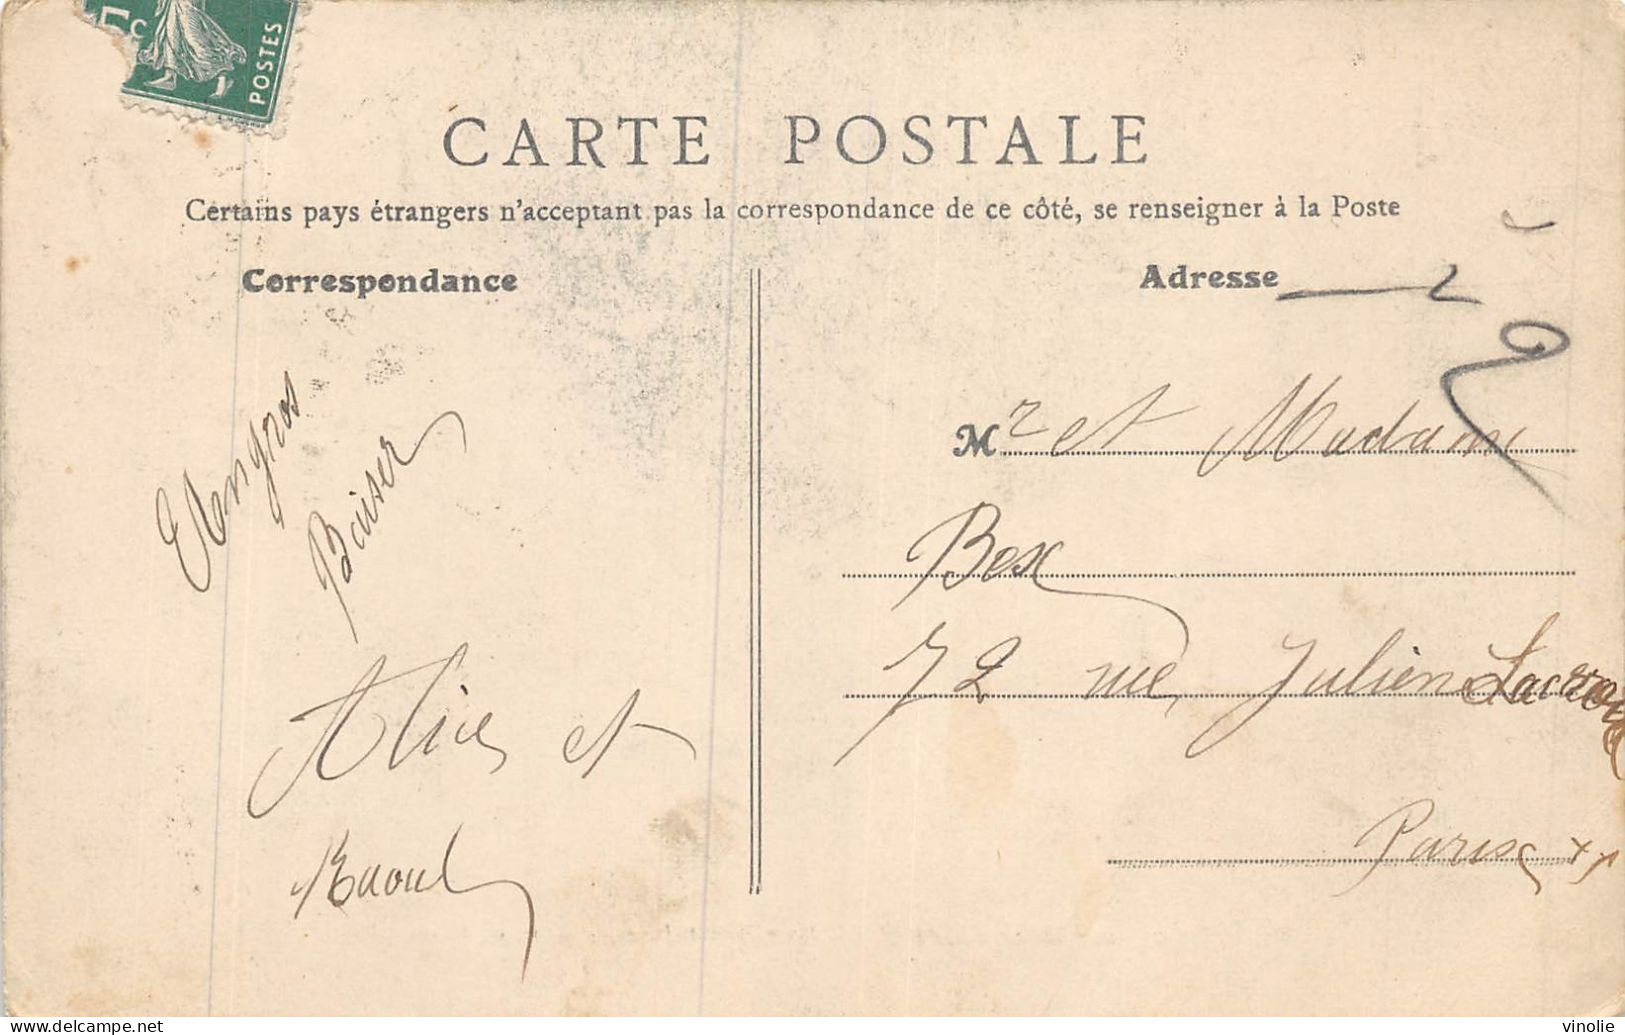 5c
POSTES
CARTE POSTALE
Certains pays étrangers n'acceptant pas la correspondance de ce côté, se renseigner à la Poste
Correspondance
gros
Baiser
Alice et
Raoul
Adresse
Mr et Madame
Bex
72 rue Julien Lacroix
Paris xx
vinolie